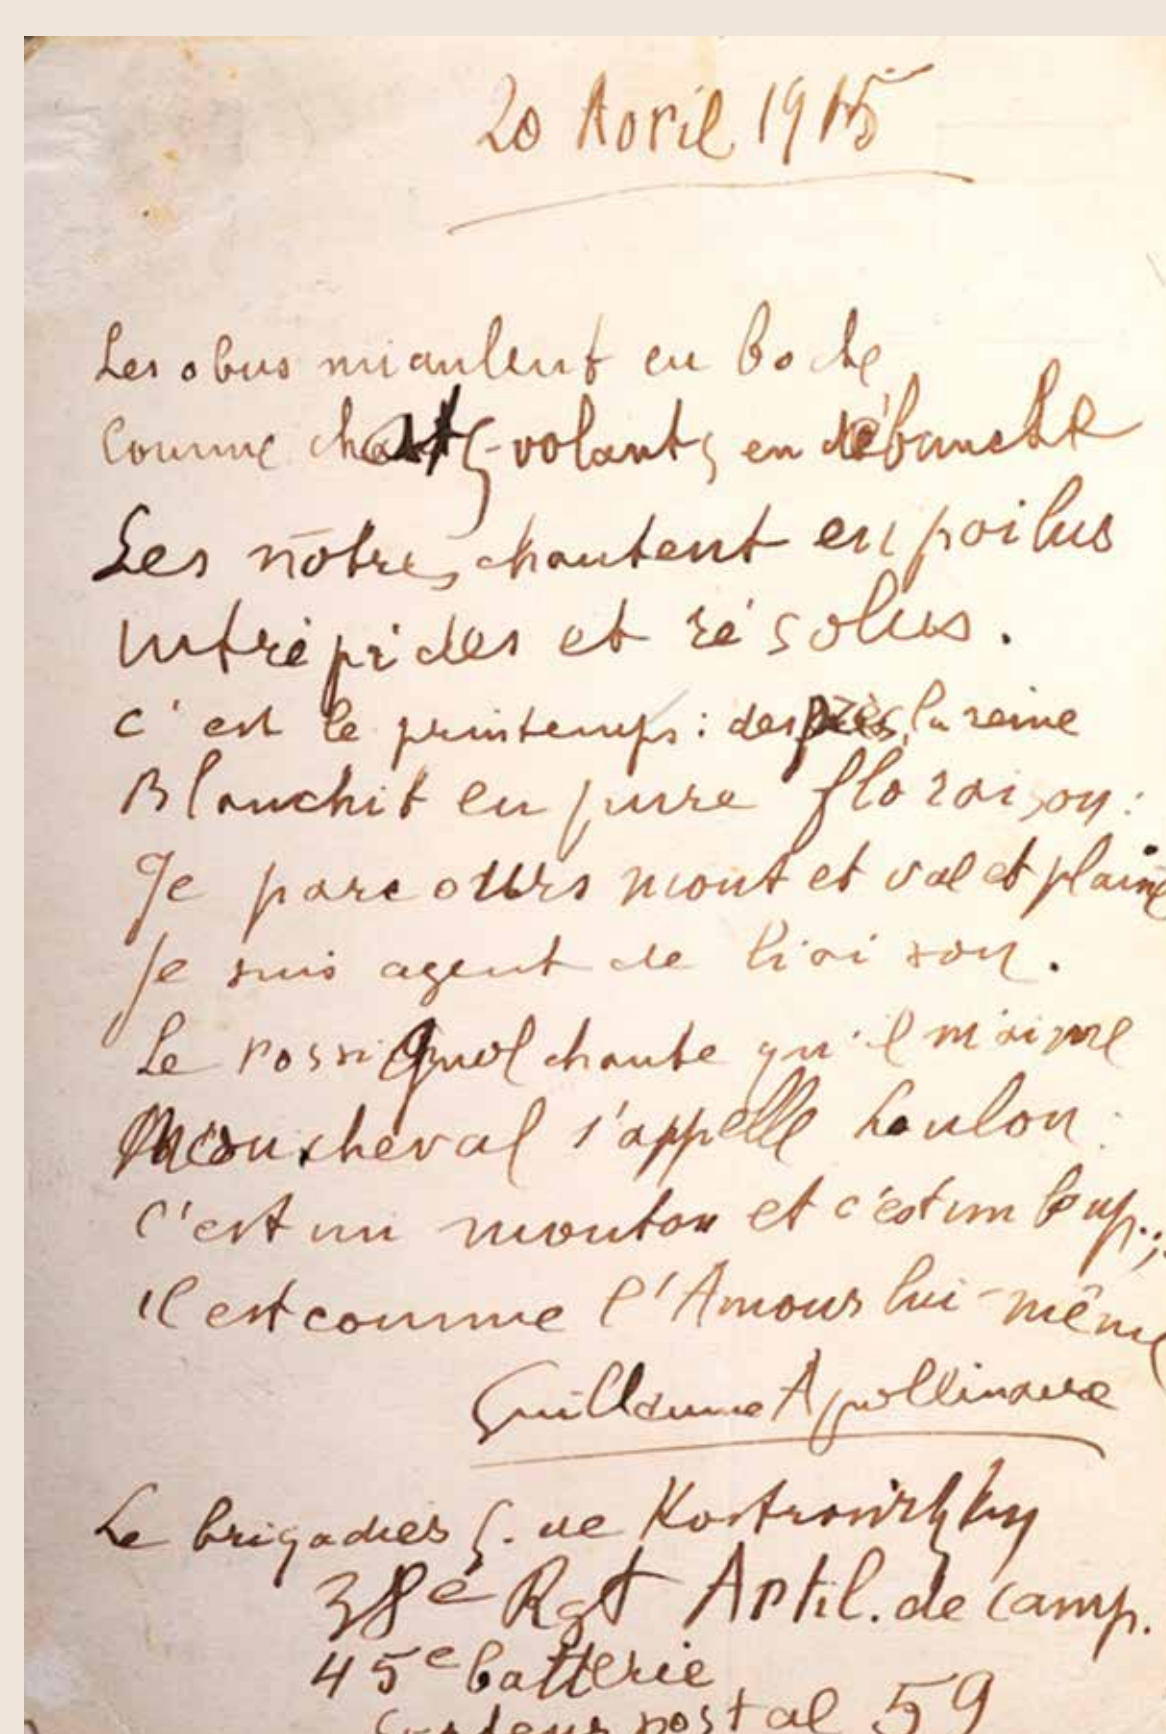 20 Avril 1915
Les obus miaulent en boche
Comme chats-volants en débauche
Les nôtres chantent en poilus
Intrépides et résolus.
C'est le printemps : des prés, la reine
Blanchit en pure floraison :
Je parcours mont et val et plaine
Je suis agent de liaison.
Le rossignol chante qu'il m'aime
Mon cheval s'appelle Loulou
C'est un mouton et c'est un loup..;
Il est comme l'Amour lui-même
Guillaume Apollinaire
Le brigadier G. de Kostrowitzky
38e Rgt Artil. de camp.
45e batterie
Secteur postal 59